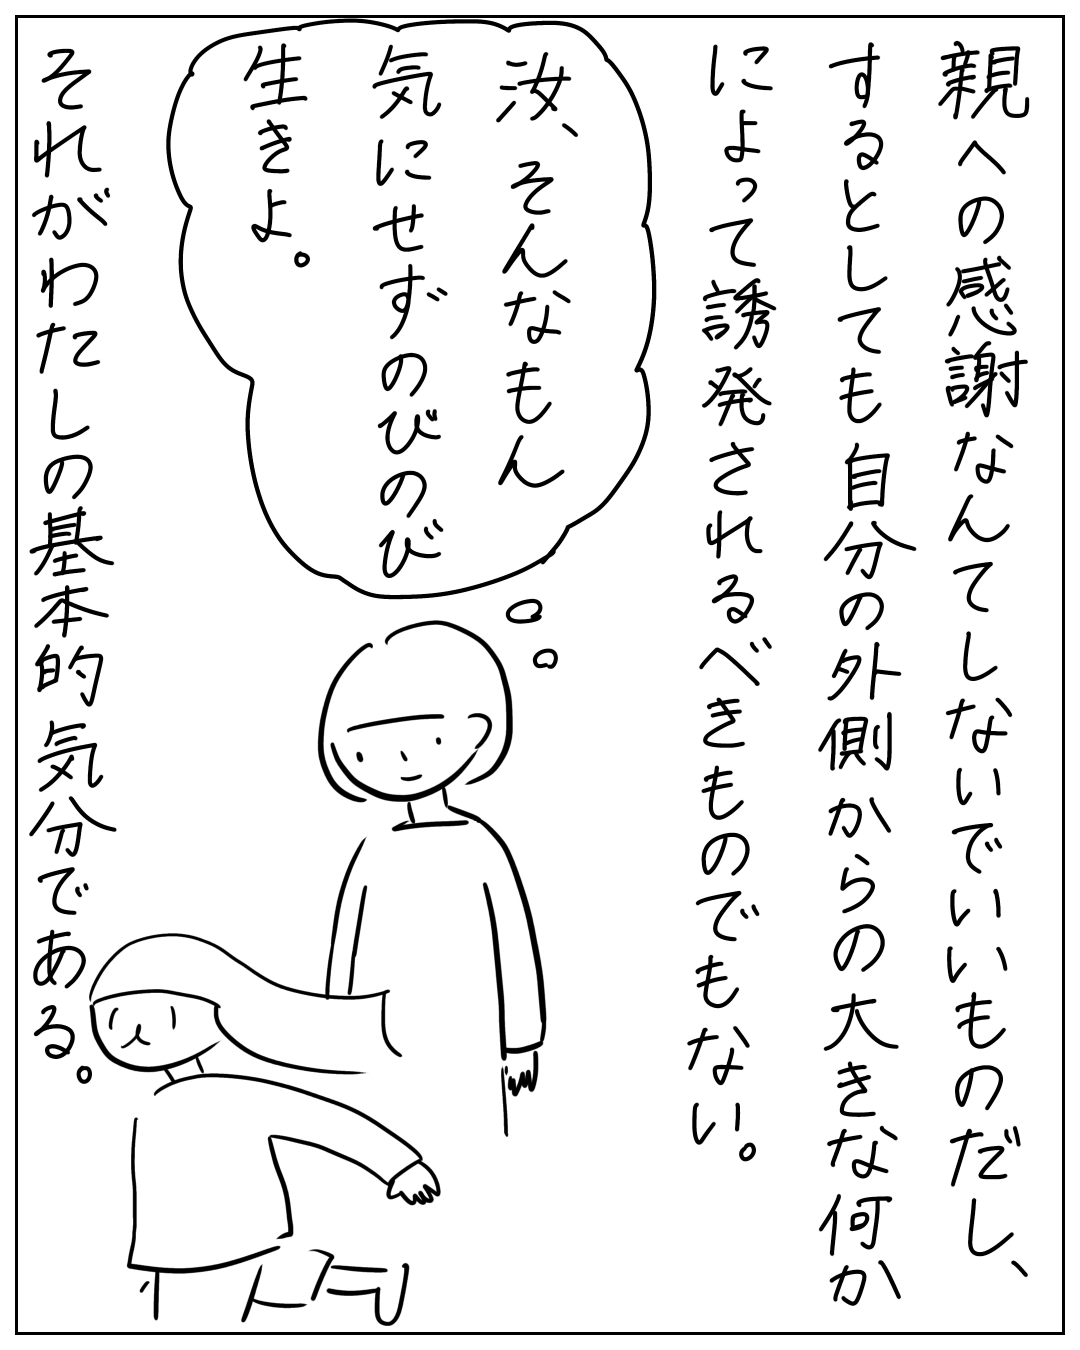 親への感謝なんてしないでいいものだし、
するとしても自分の外側からの大きな何か
によって誘発されるべきものでもない。
汝、そんなもん
気にせずのびのび
生きよ。
それがわたしの基本的気分である。